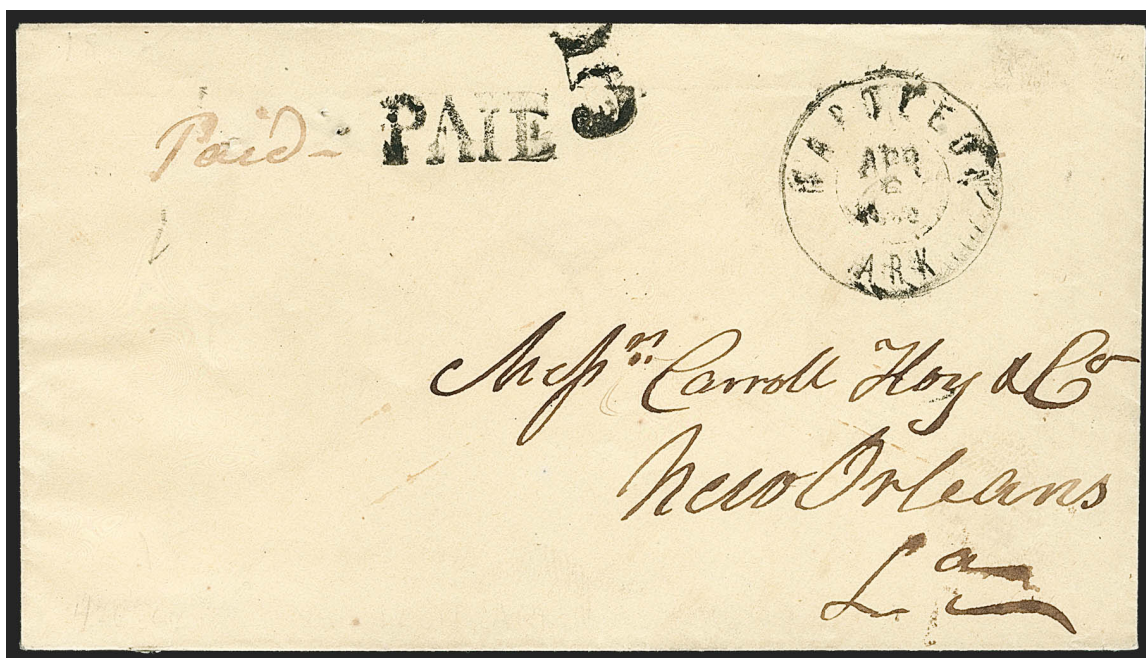 Paid - PAIE 5
NAPOLEON
APR
6
ARK
Messrs Carroll Hoy & Co
New Orleans
La